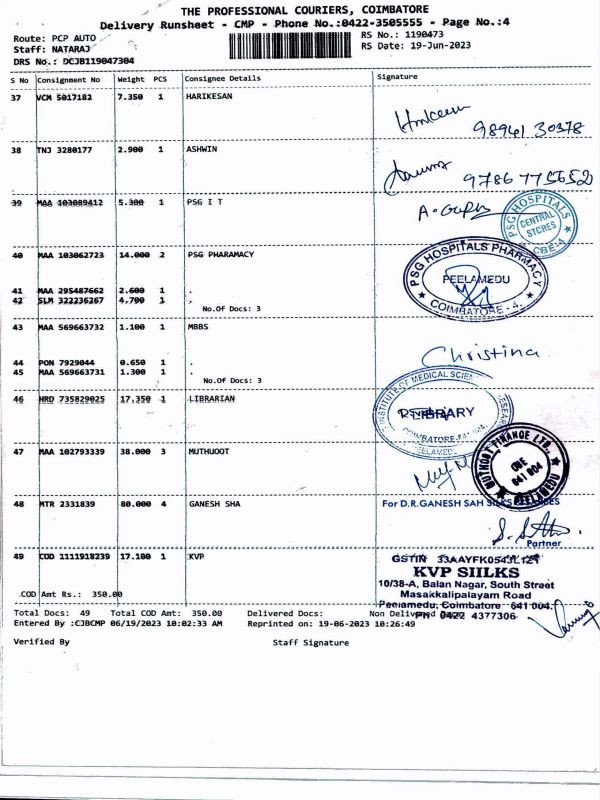 THE PROFESSIONAL COURIERS, COIMBATORE
Delivery Runsheet - CMP - Phone No.:0422-3505555 - Page No.:4
Route: PCP AUTO
RS No.: 1190473
Staff: NATARAJ
RS Date: 19-Jun-2023
DRS No.: DCJB119047304
S No Consignment No Weight PCS Consignee Details Signature
37 VCM 5017182 7.350 1 HARIKESAN
98941 30378
38 TNJ 3280177 2.900 1 ASHWIN
9786 775652
39 MAA 103089412 5.300 1 PSG I T
PSG HOSPITALS
CENTRAL
STORES
CBE-4
40 MAA 103062723 14.000 2 PSG PHARAMACY
PSG HOSPITALS PHARMACY
PEELAMEDU
COIMBATORE - 4.
41 MAA 295487662 2.600 1 .
42 SLM 322236267 4.700 1 .
No.Of Docs: 3
43 MAA 569663732 1.100 1 MBBS
Christina
44 PON 7929044 0.650 1 .
45 MAA 569663731 1.300 1 .
No.Of Docs: 3
46 HRD 735829025 17.350 1 LIBRARIAN
LIBRARY
COIMBATORE-641 004.
PEELAMEDU
47 MAA 102793339 38.000 3 MUTHUOOT
MUTHOOT FINANCE LTD.,
CBE
641 004
PEELAMEDU
48 MTR 2331839 80.000 4 GANESH SHA
For D.R.GANESH SAH SILKS
Partner
49 COD 1111918239 17.100 1 KVP
KVP SIILKS
10/38-A, Balan Nagar, South Street
Masakkalipalayam Road
Peelamedu, Coimbatore 641 004.
PH: 0422 4377306
COD Amt Rs.: 350.00
Total Docs: 49 Total COD Amt: 350.00 Delivered Docs: Non Delivered
Entered By :CJBCMP 06/19/2023 10:02:33 AM Reprinted on: 19-06-2023 10:26:49
Verified By Staff Signature